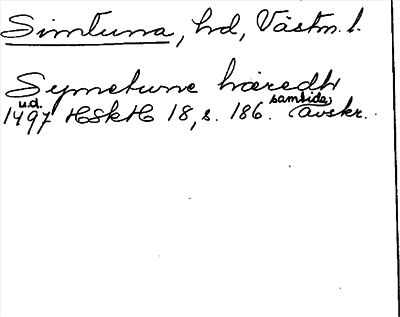 Simtuna, hd, Västm. l.
Symetune häredh
u.d. samtida
1497 HSkH 18, s. 186. avskr.